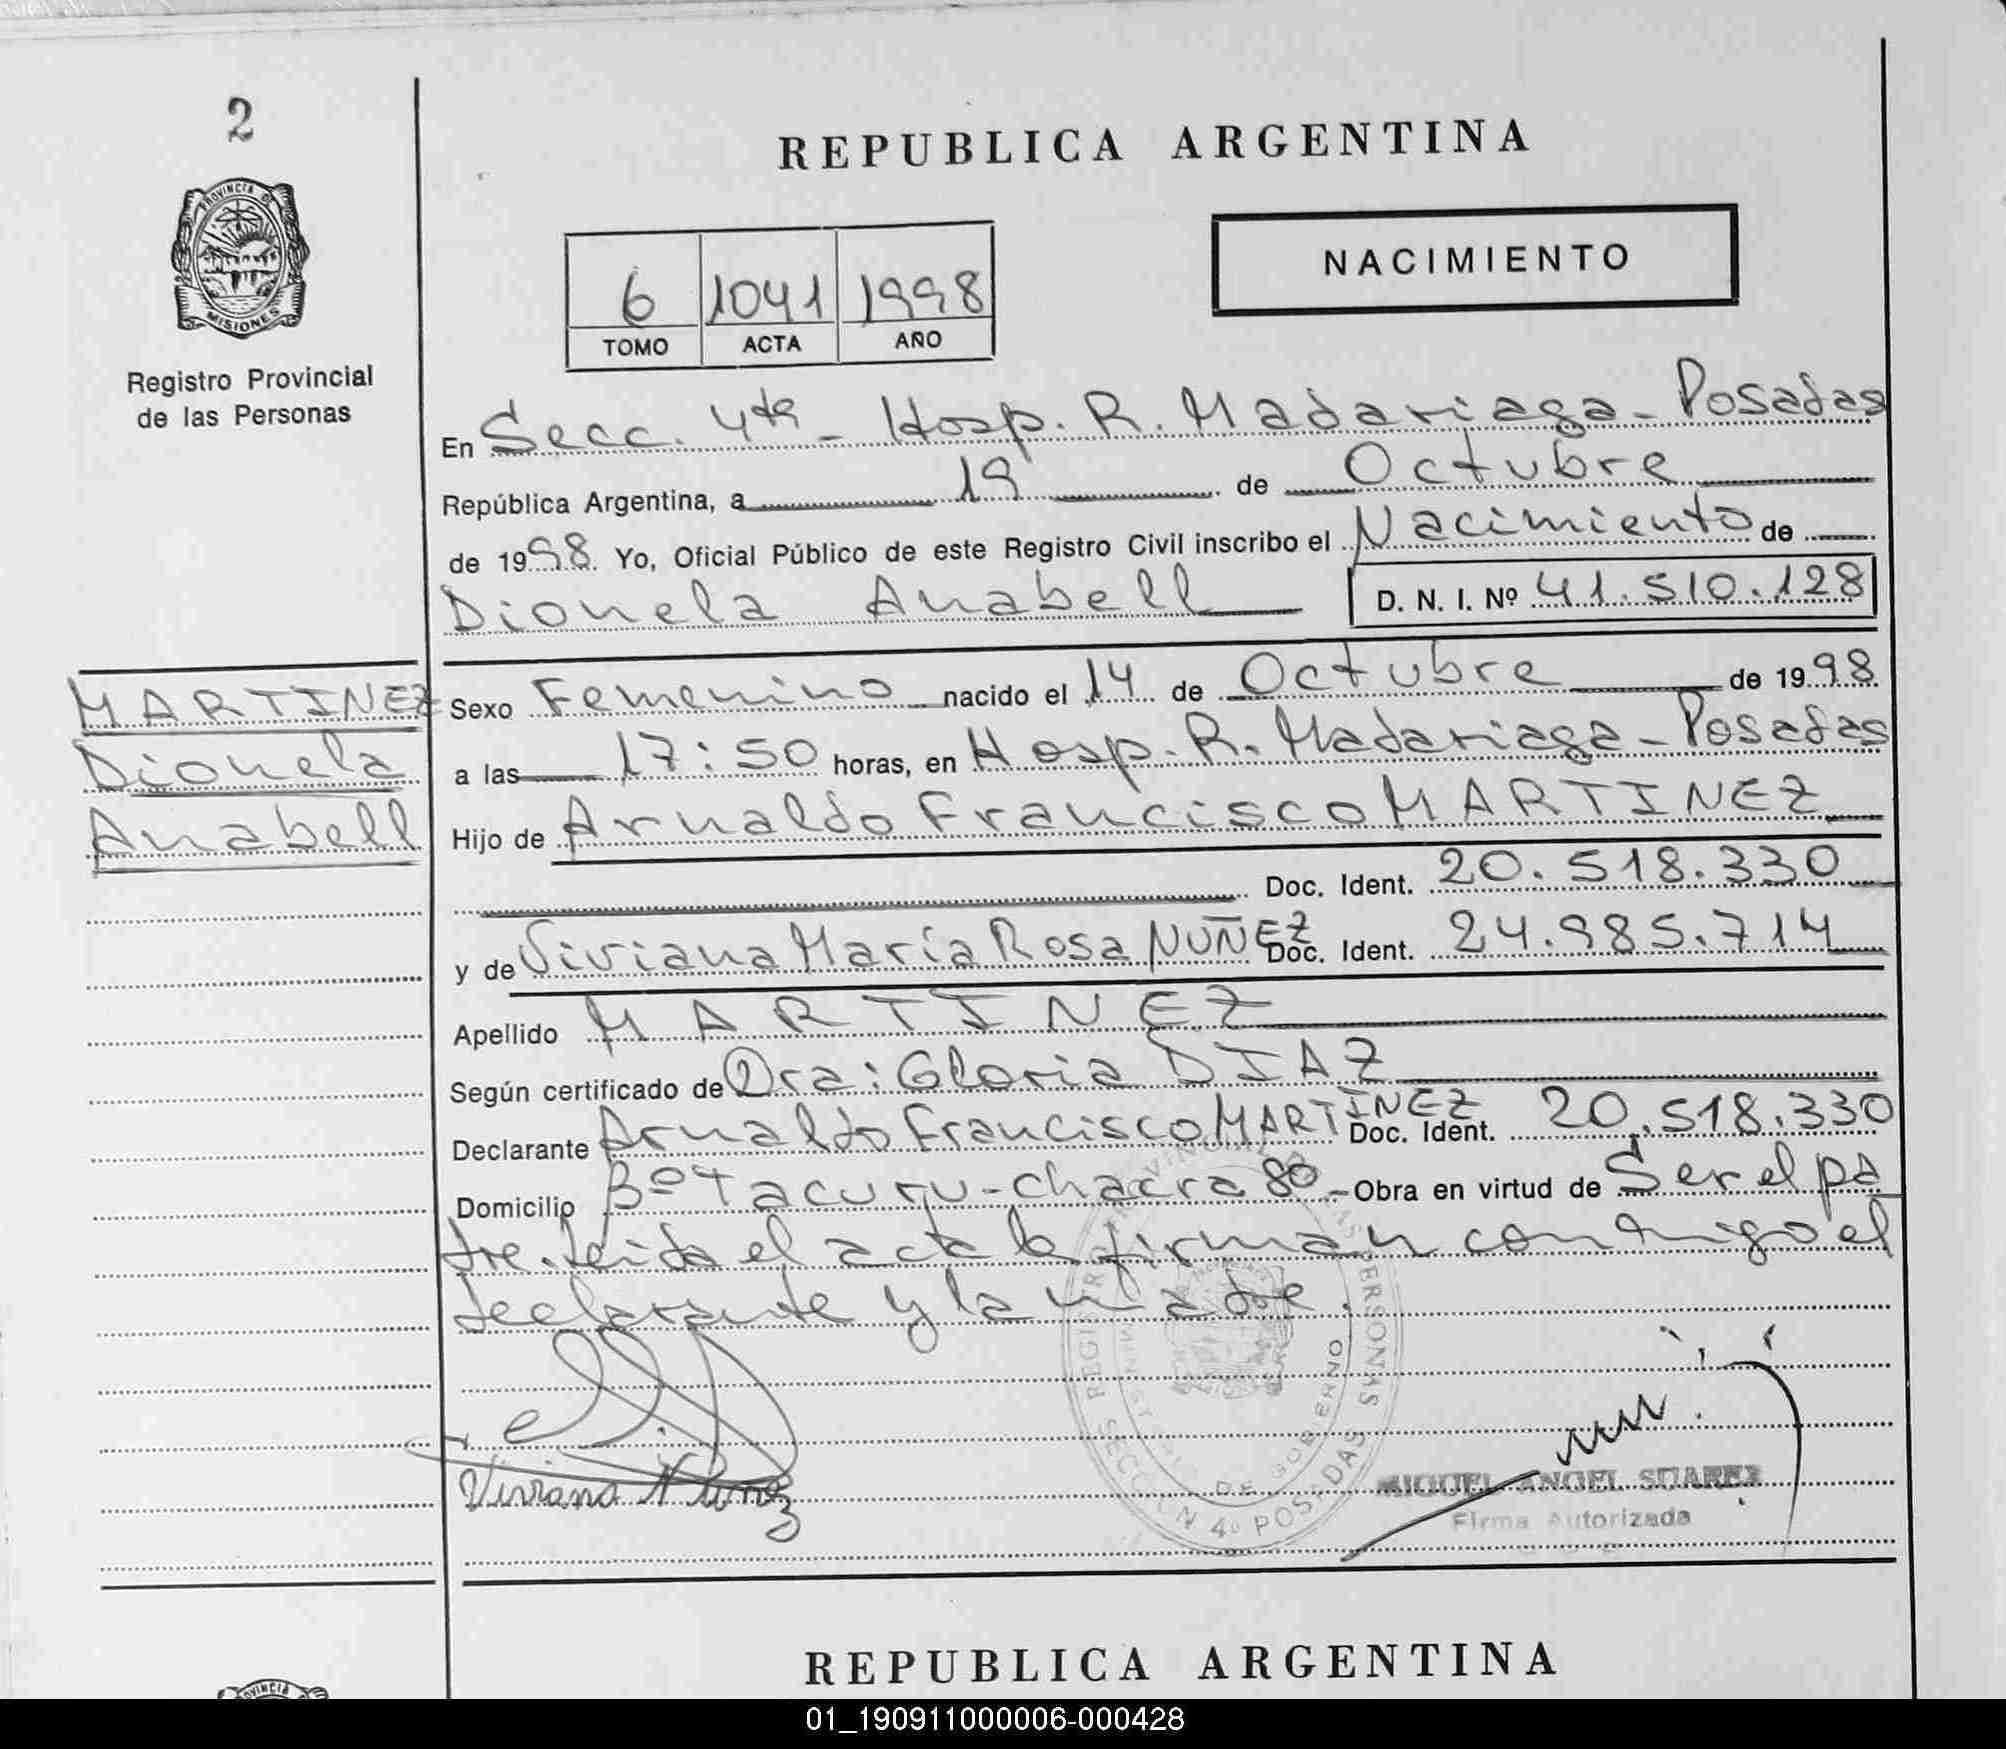 2
PROVINCIA DE
MISIONES
Registro Provincial
de las Personas
REPUBLICA ARGENTINA
NACIMIENTO
6 1041 1998
TOMO ACTA AÑO
En Secc. 4ta - Hosp. R. Madariaga - Posadas
República Argentina, a 19 de Octubre
de 1998. Yo, Oficial Público de este Registro Civil inscribo el Nacimiento de
Dionela Anabell D. N. I. Nº 41.510.128
MARTINEZ
Dionela
Anabell
Sexo Femenino nacido el 14 de Octubre de 1998.
a las 17:50 horas, en Hosp. R. Madariaga - Posadas
Hijo de Arnaldo Francisco MARTINEZ
Doc. Ident. 20.518.330
y de Viviana María Rosa NUÑEZ Doc. Ident. 24.985.714
Apellido MARTINEZ
Según certificado de Dra: Gloria DIAZ
Declarante Arnaldo Francisco MARTINEZ Doc. Ident. 20.518.330
Domicilio Bº Tacuru - chacra 80 - Obra en virtud de Ser el pa
dre. Leida el acta la firman conmigo el
declarante y la madre.
REGISTRO PROVINCIAL DE LAS PERSONAS
MINISTERIO DE GOBIERNO
SECCION 4º POSADAS
Viviana Nuñez
MIGUEL ANGEL SUAREZ
Firma Autorizada
REPUBLICA ARGENTINA
PROVINCIA
01_190911000006-000428